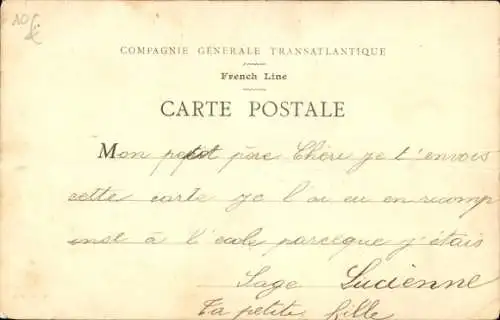 COMPAGNIE GÉNÉRALE TRANSATLANTIQUE
French Line
CARTE POSTALE
Mon petit père Chéri je t'envois
cette carte je l'ai eu en recomp
inse à l'école parceque j'étais
Sage Lucienne
Ta petite fille